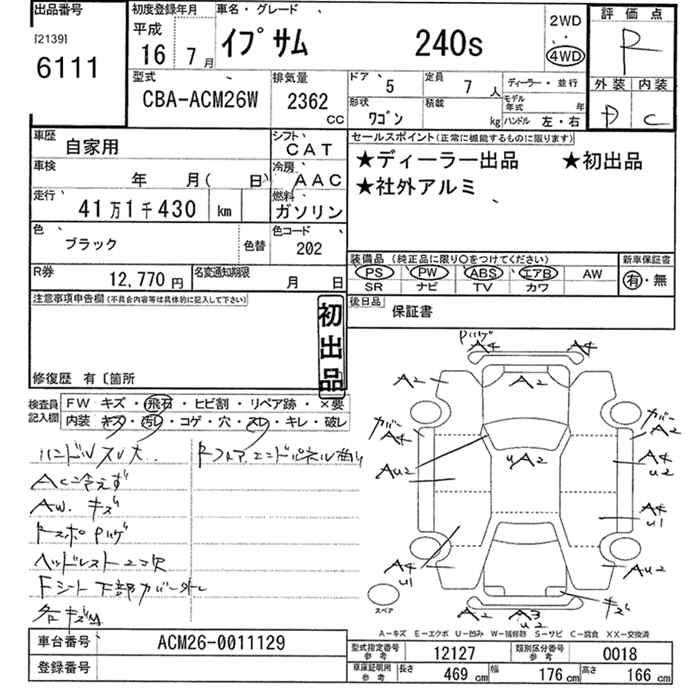 出品番号
[2139]
6111
初度登録年月
平成
16年 7月
車名・グレード
イプサム 240s
2WD
4WD
評価点
R
外装 内装
D C
型式
CBA-ACM26W
排気量
2362 CC
ドア 5
定員 7人
形状 ワゴン
積載 kg
ディーラー・並行
モデル年式 年
ハンドル 左・右
車歴 自家用
シフト CAT
車検 年 月( 日)
冷房 AAC
走行 41万1千430 km
燃料 ガソリン
色 ブラック
色替
色コード 202
R券 12,770円
名変通知期限 月 日
セールスポイント(正常に機能するものに限ります)
★ディーラー出品 ★初出品
★社外アルミ
装備品(純正品に限り○をつけてください)
PS PW ABS エアB AW
SR ナビ TV カワ
新車保証書
有・無
注意事項申告欄(不具合内容等は具体的に記入して下さい)
初出品
修復歴 有〔箇所
後日品 保証書
検査員記入欄
FW キズ・飛石・ヒビ割・リペア跡・×要
内装 キズ・汚レ・コゲ・穴・スレ・キレ・破レ
ハンドルスレ大
AC冷えず
AW. キズ
ヘッドレスト
各キズ
A4 A4
A2 A2
カバー A4
カバー A2
AU2 UA2
A4 U2
A4 U1
A4 U1
AU2
A2 A3 U2
キズ
スペア
A-キズ E-エクボ U-凹み W-補修跡 S-サビ C-腐食 XX-交換済
車台番号 ACM26-0011129
登録番号
型式指定番号 参考 12127
類別区分番号 参考 0018
車庫証明用 参考 長さ 469 cm 幅 176 cm 高さ 166 cm